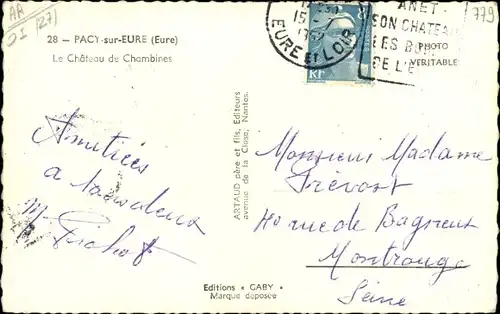 28 - PACY-sur-EURE (Eure)
Le Château de Chambines
EURE ET LOIR
RF
ANET
SON CHATEAU
LES BOR
DE L'E
779
PHOTO
VERITABLE
ARTAUD père et fils, Editeurs
avenue de la Close, Nantes.
Amitiées
a tous deux
M. Pichot
Monsieur Madame
Prévost
rue de Bagneux
Montrouge
Seine
Editions « GABY »
Marque deposée